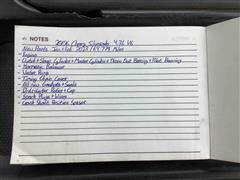 NOTES
2006 Chevy Silverado 4.3L V6
New Parts Installed 2023/67,778 Miles
- Engine
- Clutch + Slave Cylinder + Master Cylinder + Throw Out Bearing + Pilot Bearing
- Harmonic Balancer
- Water Pump
- Timing Chain Cover
- All New Gaskets + Seals
- Distributor Rotor + Cap
- Spark Plugs + Wires
- Crank Shaft Position Sensor